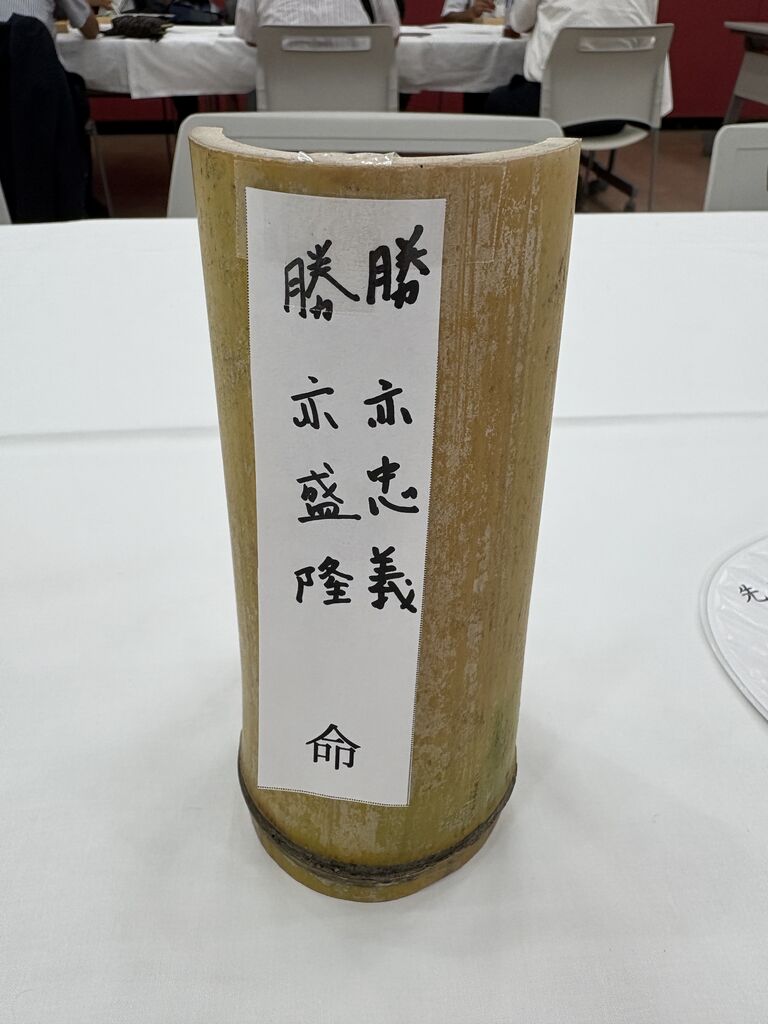 勝亦忠義
勝亦盛隆
命
先